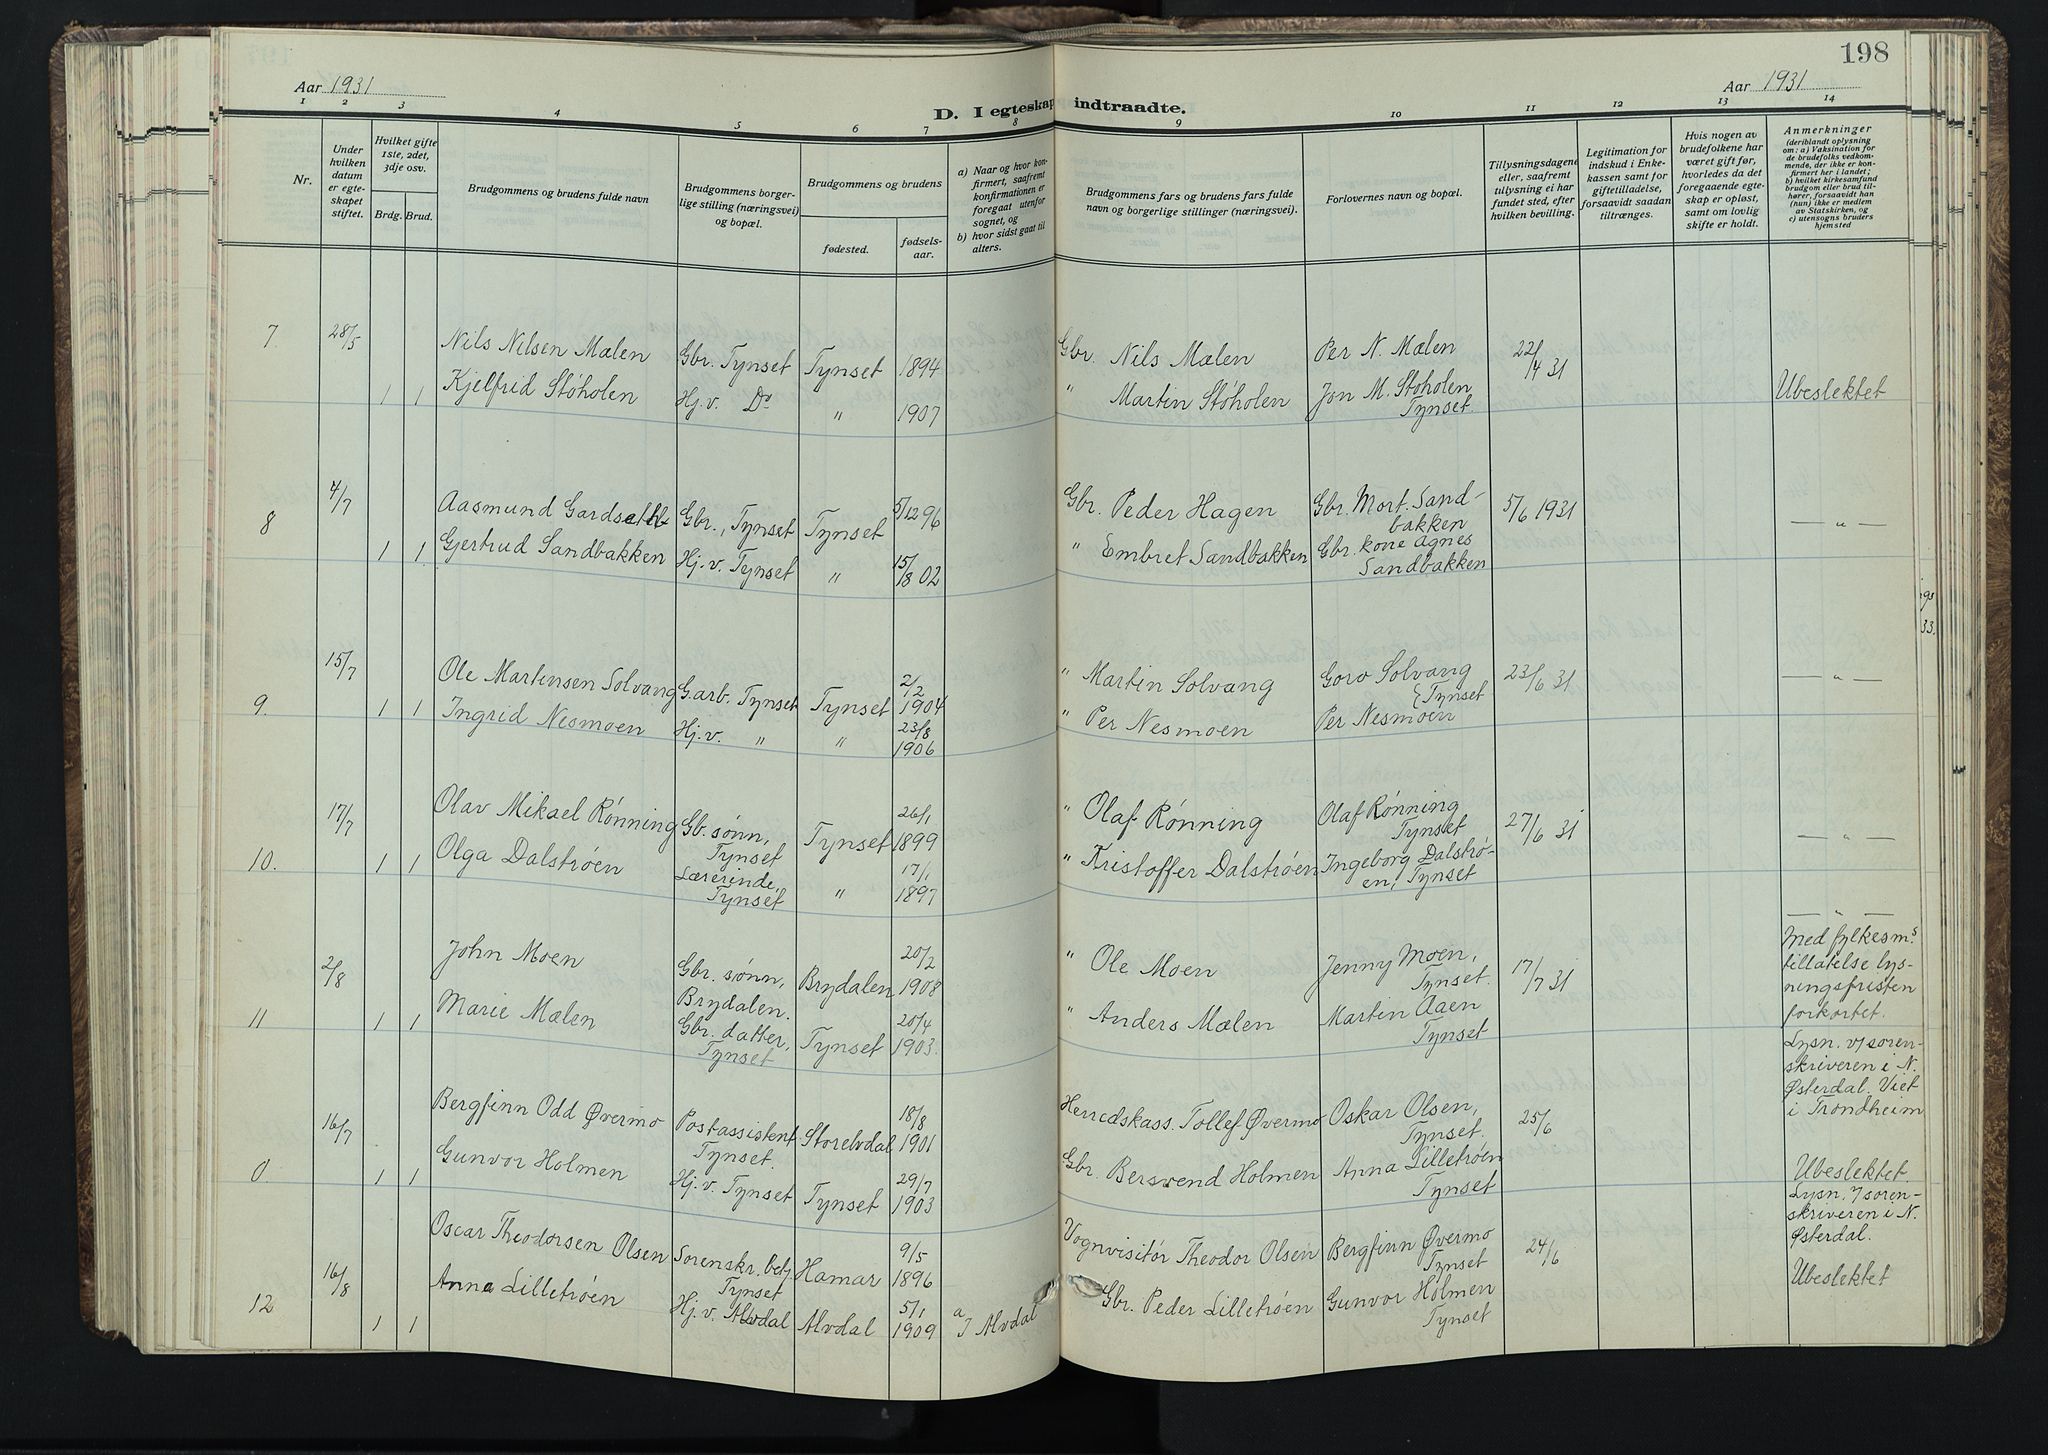 198
Aar 1931
Aar 1931
D. I egteskap indtraadte.
1 2 3 4 5 6 7 8 9 10 11 12 13 14
Nr.
Under hvilken datum er egteskapet stiftet.
Hvilket gifte 1ste, 2det, 3dje osv.
Brdg. Brud.
Brudgommens og brudens fulde navn
Brudgommens borgerlige stilling (næringsvei) og bopæl.
Brudgommens og brudens
fødested.
fødselsaar.
a) Naar og hvor konfirmert, saafremt konfirmationen er foregaat utenfor sognet, og
b) hvor sidst gaat til alters.
Brudgommens fars og brudens fars fulde navn og borgerlige stillinger (næringsvei).
Forlovernes navn og bopæl.
Tillysningsdagene eller, saafremt tillysning ei har fundet sted, efter hvilken bevilling.
Legitimation for indskud i Enkekassen samt for giftetilladelse, forsaavidt saadan tiltrænges.
Hvis nogen av brudefolkene har været gift før, hvorledes da det foregaaende egteskap er opløst, samt om lovlig skifte er holdt.
Anmerkninger
(deriblandt oplysning om: a) Vaksination for de brudefolks vedkommende, der ikke er konfirmert her i landet; b) hvilket kirkesamfund brudgom eller brud tilhører, forsaavidt han (hun) ikke er medlem av Statskirken, og c) utensogns bruders hjemsted
7 28/5 Nils Nilsen Mælen Gbr. Tynset Tynset 1894 Gbr. Nils Mælen Per N. Mælen 22/4 31
1 1 Kjelfrid Støholen Hj.v. Do " 1907 " Martin Støholen Jon M. Støholen Tynset. Ubeslektet
8 4/7 Aasmund Gardseth Gbr., Tynset Tynset 5/12 96 Gbr. Peder Hagen Gbr. Mort. Sandbakken 5/6 1931 — " —
1 1 Gjertrud Sandbakken Hj.v. Tynset " 15/8 02 " Embret Sandbakken Gbr. kone Agnes Sandbakken
9. 15/7 Ole Martinsen Solvang G.arb. Tynset Tynset 2/2 1904 " Martin Solvang Goro Solvang 23/6 31 — " —
1 1 Ingrid Nesmoen Hj.v. " " 23/8 1906 " Per Nesmoen Per Nesmoen } Tynset
10. 17/7 Olav Mikael Rønning Gb. sønn, Tynset Tynset 26/1 1899 " Olaf Rønning Olaf Rønning Tynset 27/6 31 — " —
1 1 Olga Dalstrøen Lærerinde, Tynset " 17/1 1897 " Kristoffer Dalstrøen Ingeborg Dalstrøen, Tynset
11 2/8 John Moen Gbr. sønn, Brydalen. Brydalen 20/2 1908 " Ole Moen Jenny Moen, Tynset. 17/7 31 — " — Med fylkesm.s tillatelse lysningsfristen forkortet.
1 1 Marie Mælen Gbr. datter, Tynset Tynset 20/4 1903. " Anders Mælen Martin Aaen Tynset
0. 16/7 Bergfinn Odd Øvermo Postassistent Tynset. Storelvdal 18/8 1901 Herredskass. Tollef Øvermo Oskar Olsen, Tynset. 25/6 Lysn. v/ sorenskriveren i N. Østerdal. Viet i Trondheim
1 1 Gunvor Holmen Hj.v. Tynset Tynset 29/7 1903 Gbr. Bersvend Holmen Anna Lilletrøen Tynset Ubeslektet.
12 16/8 Oscar Theodorsen Olsen Sorenskr. betj. Tynset Hamar 9/5 1896 Vognvisitør Theodor Olsen Bergfinn Øvermo Tynset 24/6 Lysn. v/ sorenskriveren i N. Østerdal.
1 1 Anna Lilletrøen Hj.v. Alvdal Alvdal 5/1 1909 a I Alvdal Gbr. Peder Lilletrøen Gunvor Holmen Tynset Ubeslektet
33.